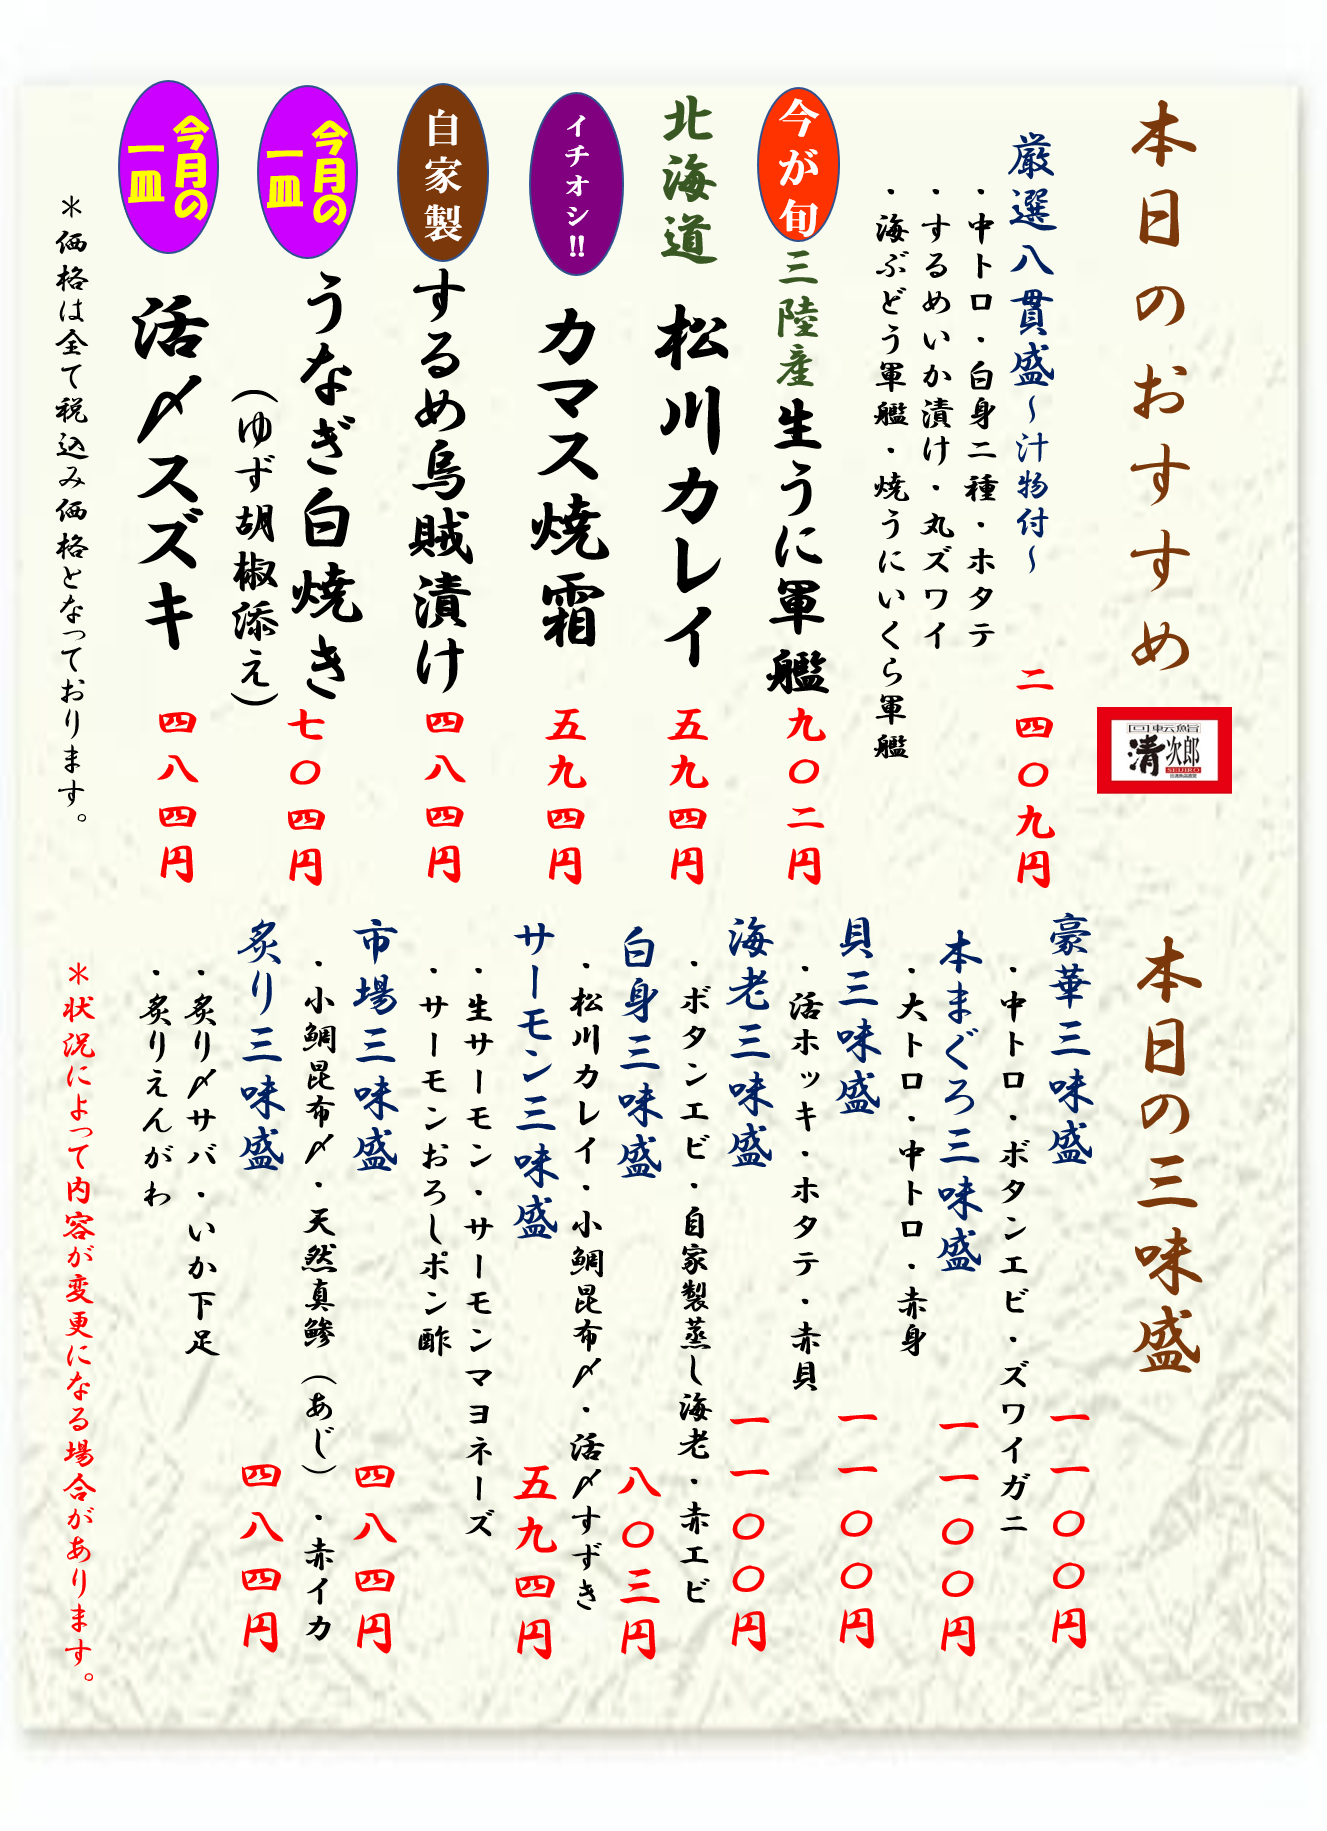 本日のおすすめ
回転鮨
清次郎
SEIJIRO
厳選八貫盛～汁物付～
二四〇九円
・中トロ・白身二種・ホタテ
・するめいか漬け・丸ズワイ
・海ぶどう軍艦・焼うにいくら軍艦
今が旬
三陸産生うに軍艦
九〇二円
北海道
松川カレイ
五九四円
イチオシ!!
カマス焼霜
五九四円
自家製
するめ烏賊漬け
四八四円
今月の
一皿
うなぎ白焼き
(ゆず胡椒添え)
七〇四円
今月の
一皿
活〆スズキ
四八四円
＊価格は全て税込み価格となっております。
本日の三味盛
豪華三味盛
一一〇〇円
・中トロ・ボタンエビ・ズワイガニ
本まぐろ三味盛
一一〇〇円
・大トロ・中トロ・赤身
貝三味盛
一一〇〇円
・活ホッキ・ホタテ・赤貝
海老三味盛
一一〇〇円
・ボタンエビ・自家製蒸し海老・赤エビ
白身三味盛
八〇三円
・松川カレイ・小鯛昆布〆・活〆すずき
サーモン三味盛
五九四円
・生サーモン・サーモンマヨネーズ
・サーモンおろしポン酢
市場三味盛
四八四円
・小鯛昆布〆・天然真鯵(あじ)・赤イカ
炙り三味盛
四八四円
・炙り〆サバ・いか下足
・炙りえんがわ
＊状況によって内容が変更になる場合があります。